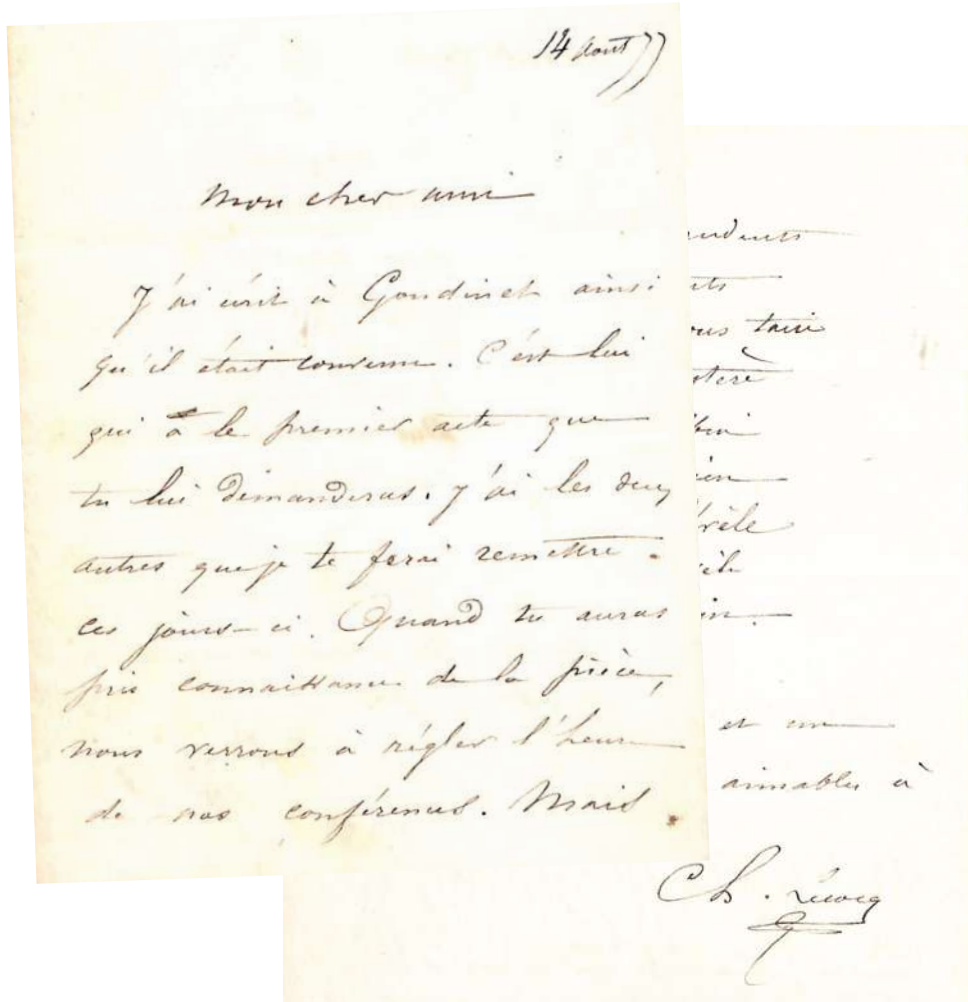 14 Aout 77
Mon cher ami
J'ai écrit à Gondinet ainsi
qu'il était convenu. C'est lui
qui a le premier acte que
tu lui demanderas. J'ai les deux
autres que je te ferai remettre
ces jours-ci. Quand tu auras
pris connaissance de la pièce,
nous verrons à régler l'heure
de nos conférences. Mais
et un
aimables à
Ch. Lecocq